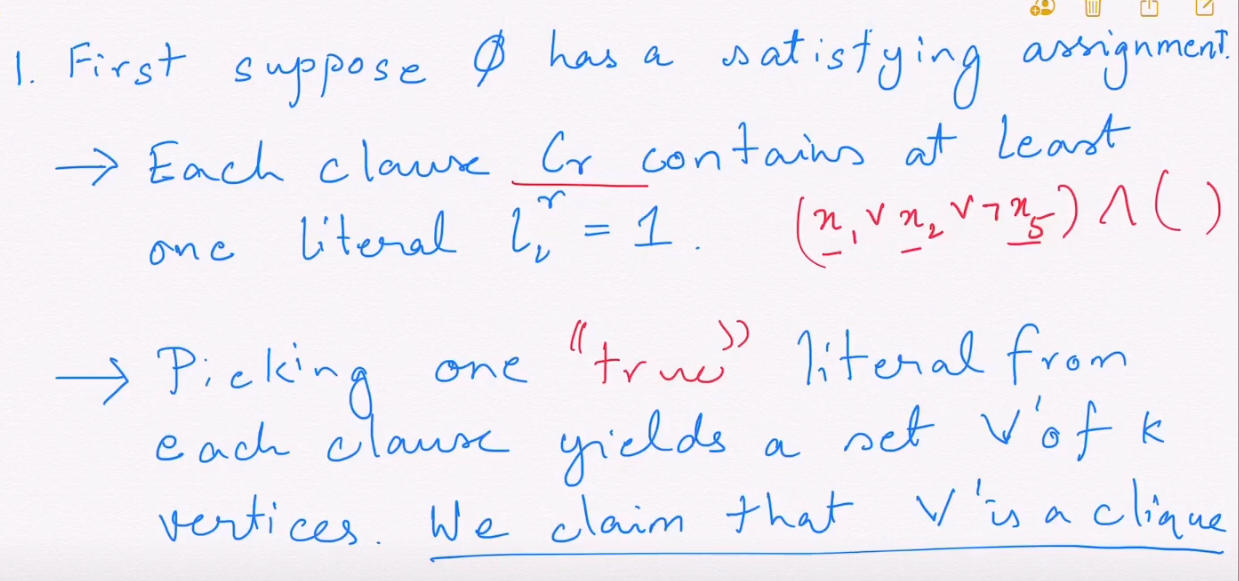 1. First suppose ϕ has a satisfying assignment.
→ Each clause Cr contains at least
one literal lᵢʳ = 1. (x₁ ∨ x₂ ∨ ¬x₅) ∧ ( )
→ Picking one "true" literal from
each clause yields a set V' of k
vertices. We claim that V' is a clique